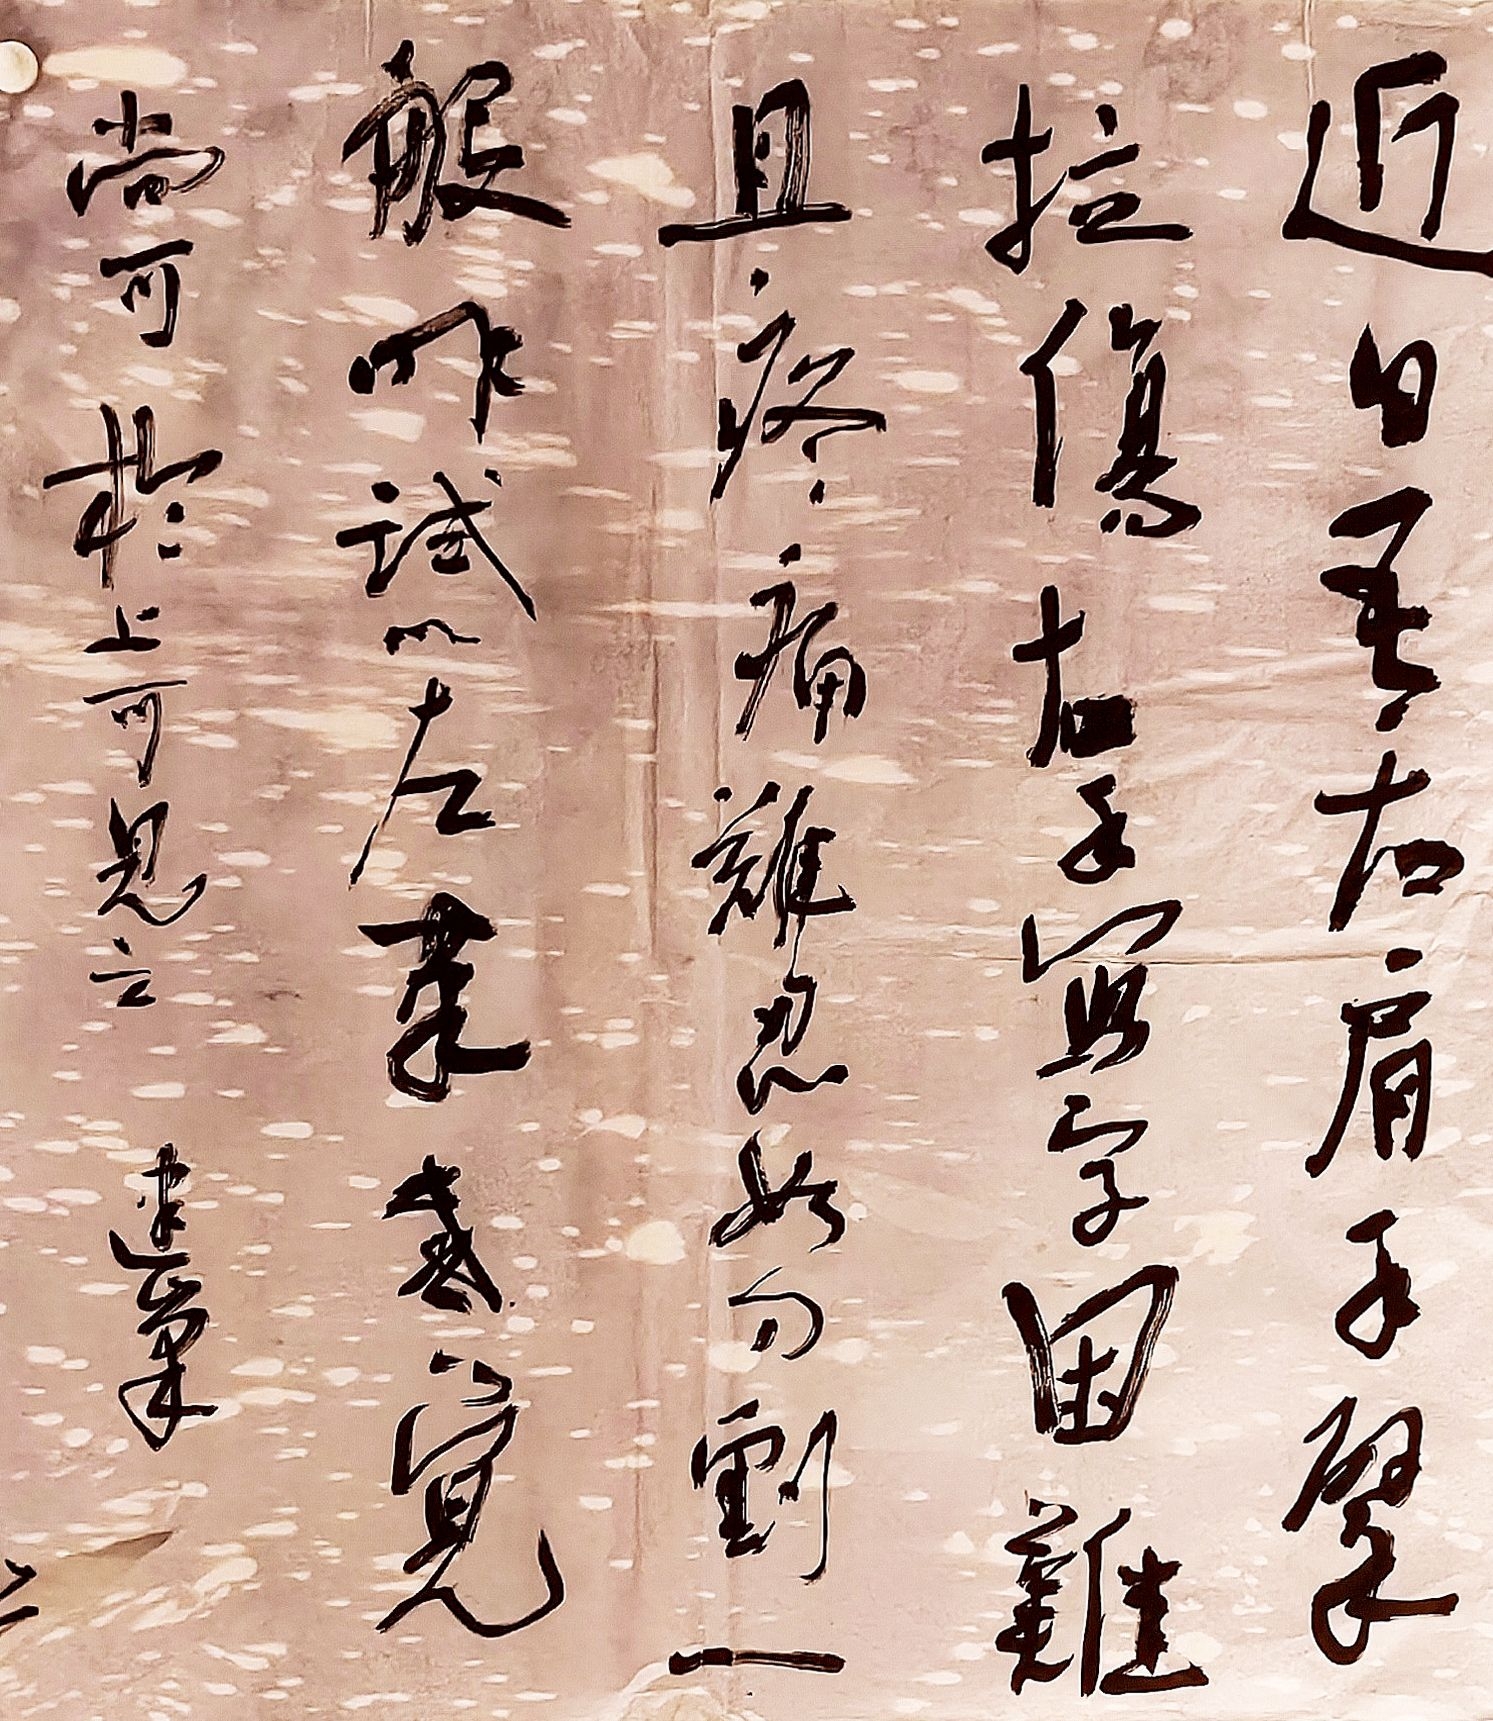 近日吾右肩手臂
拉傷右手寫字困難
且疼痛難忍如刀割一
般昨試以左筆感覺
尚可於上可見云 建